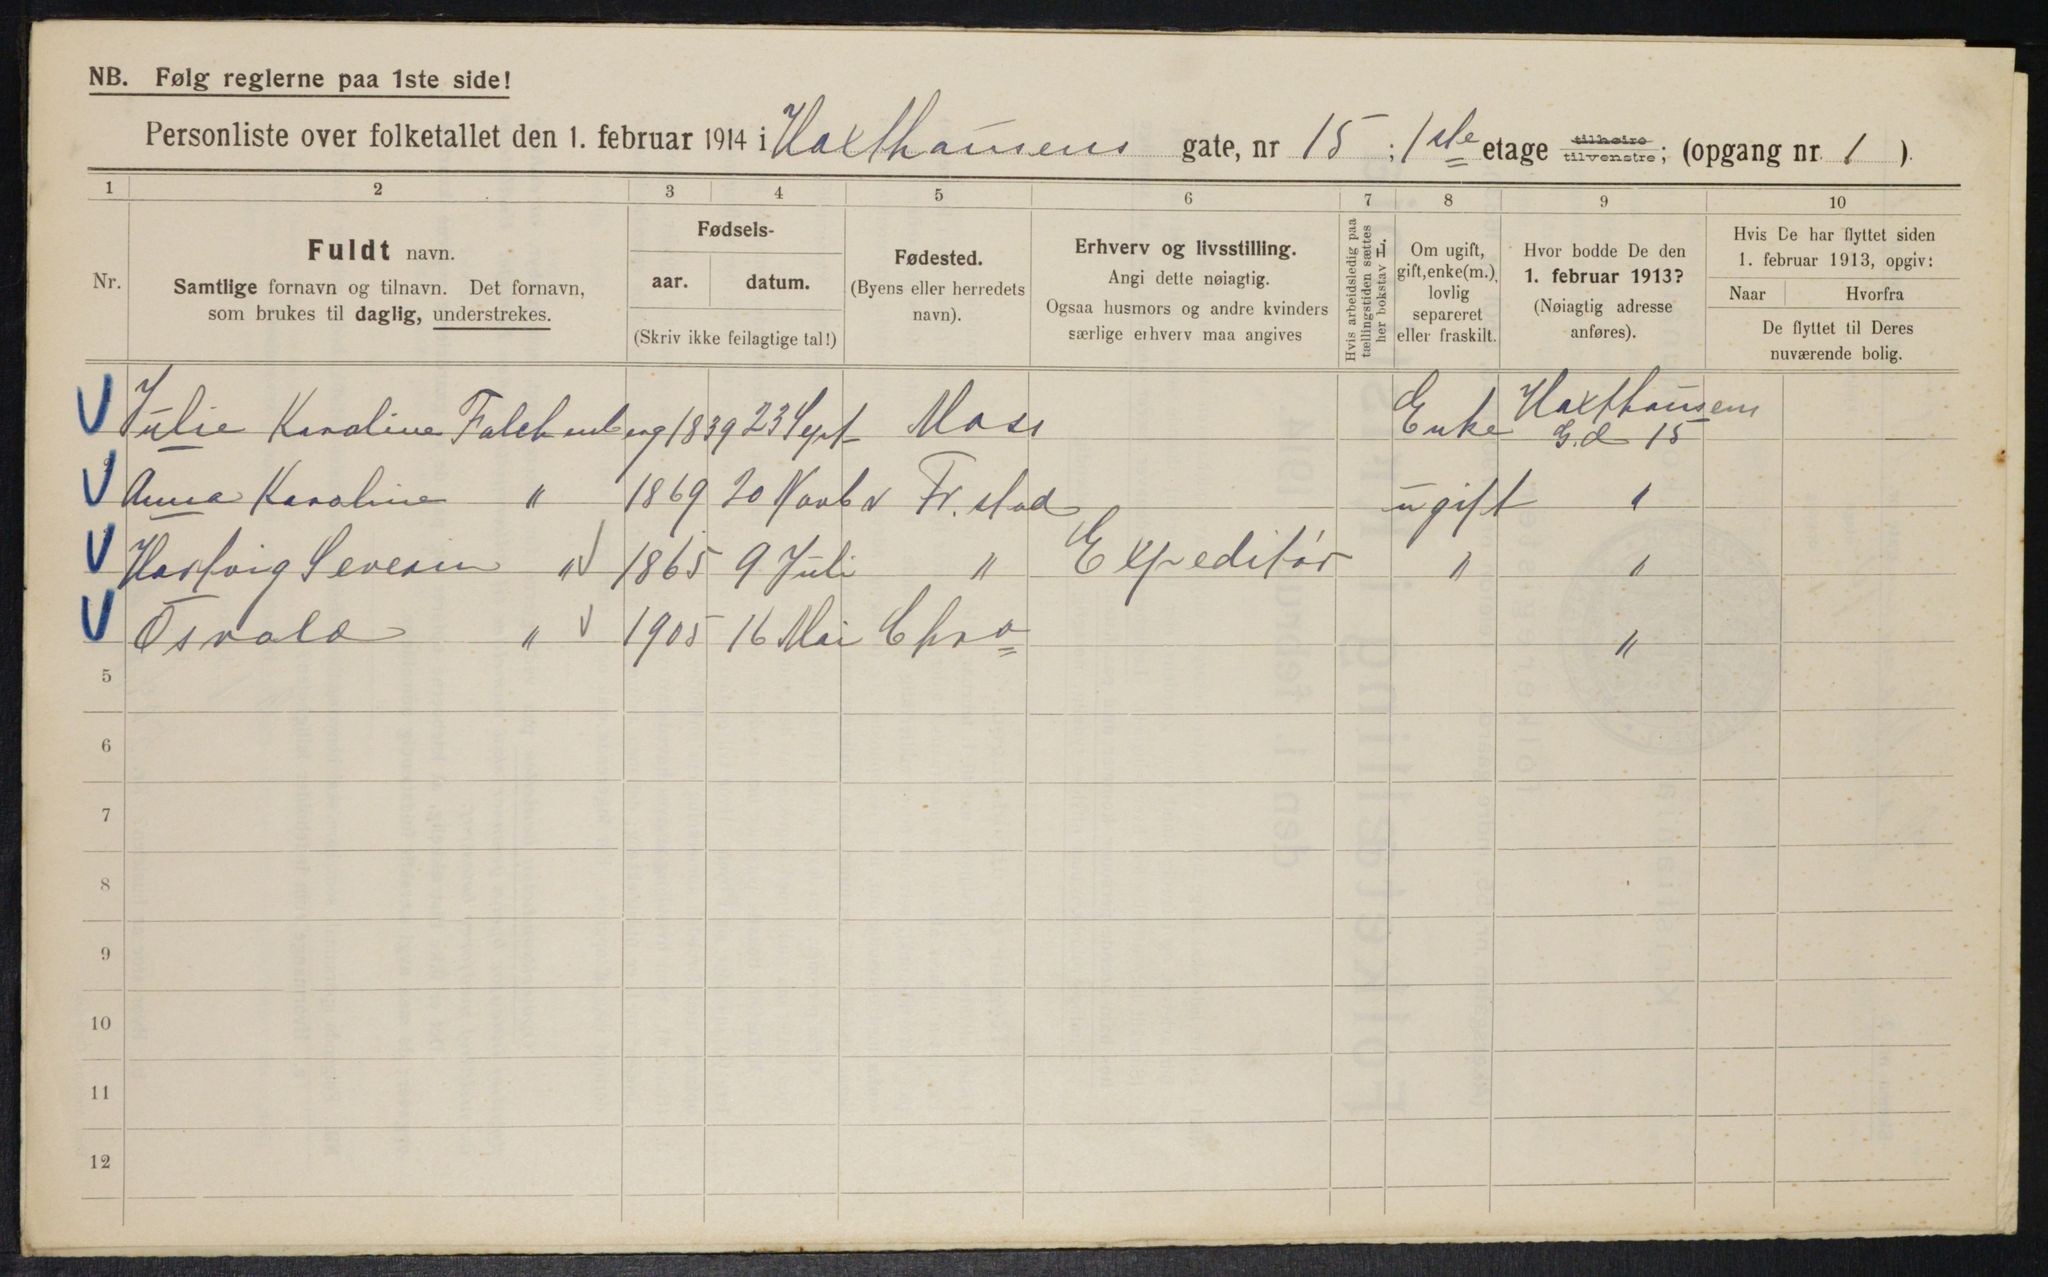 NB. Følg reglerne paa 1ste side!
Personliste over folketallet den 1. februar 1914 i Haxthausens gate, nr 15 ; 1ste etage tilhøire tilvenstre; (opgang nr. 1 ).
1 2 3 4 5 6 7 8 9 10
Nr.
Fuldt navn.
Samtlige fornavn og tilnavn. Det fornavn,
som brukes til daglig, understrekes.
Fødsels-
aar. datum.
(Skriv ikke feilagtige tal!)
Fødested.
(Byens eller herredets
navn).
Erhverv og livsstilling.
Angi dette nøiagtig.
Ogsaa husmors og andre kvinders
særlige erhverv maa angives
Hvis arbeidsledig paa
tællingstiden sættes
her bokstav l.
Om ugift,
gift, enke(m.),
lovlig
separeret
eller fraskilt.
Hvor bodde De den
1. februar 1913?
(Nøiagtig adresse
anføres).
Hvis De har flyttet siden
1. februar 1913, opgiv:
Naar Hvorfra
De flyttet til Deres
nuværende bolig.
Julie Karoline Falchenberg 1839 23 Sept Moss Enke Haxthausens
G.d 15
Anna Karoline " 1869 20 Novbr Fr.stad ugift "
Hartvig Severin " 1865 9 Juli " Expeditør " "
Osvald " 1905 16 Mai Chra "
5
6
7
8
9
10
11
12